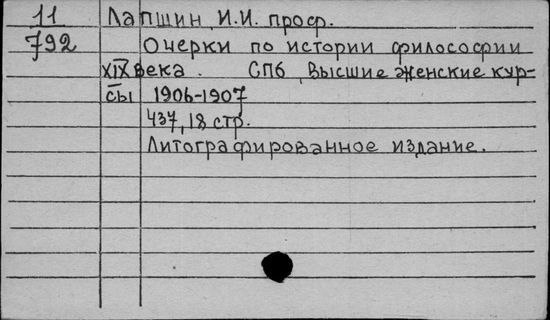 11 Лапшин И.И. проф.
792 Очерки по истории философии
XIX века. СПб, Высшие женские кур-
сы 1906-1907
437, 18 стр.
Литографированное издание.